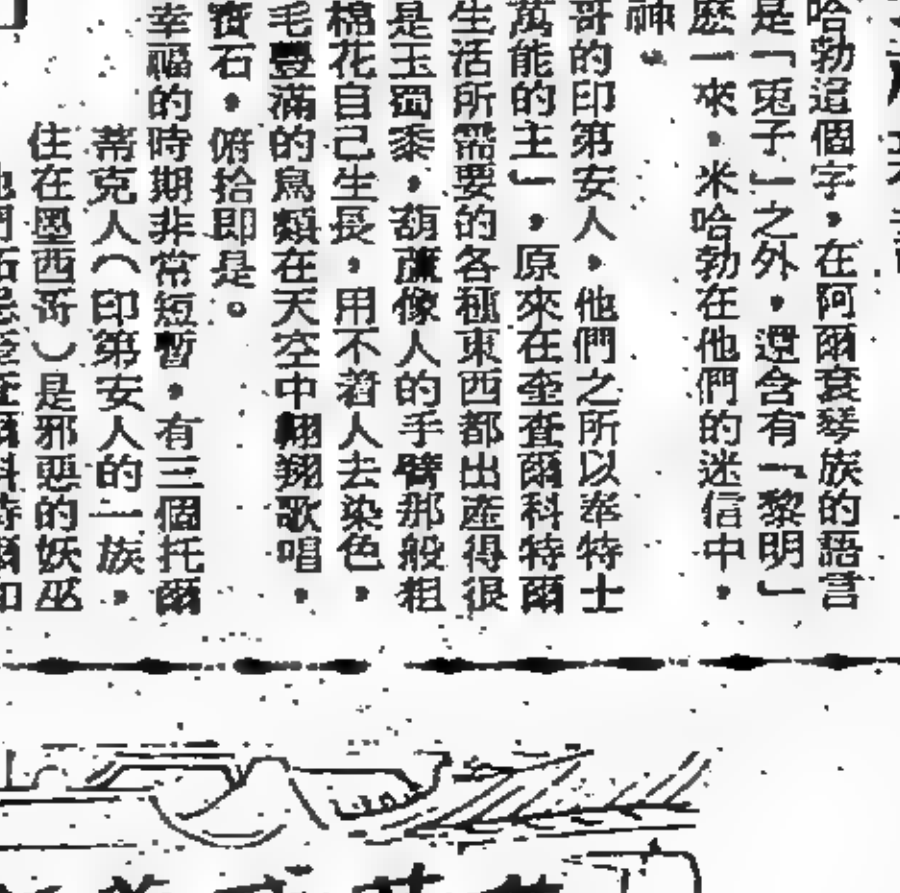 哈勃這個字，在阿爾袞琴族的語言
是「兎子」之外，還含有「黎明」
麽一來，米哈勃在他們的迷信中，
神。
哥的印第安人，他們之所以奉特士
萬能的主」，原來在奎查爾科特爾
生活所需要的各種東西都出產得很
是玉蜀黍，葫蘆像人的手臂那般粗
棉花自己生長，用不着人去染色，
毛豐滿的鳥類在天空中翱翔歌唱，
寶石，俯拾即是。
幸福的時期非常短暫，有三個托爾
蒂克人（印第安人的一族，
住在墨西哥）是邪惡的妖巫